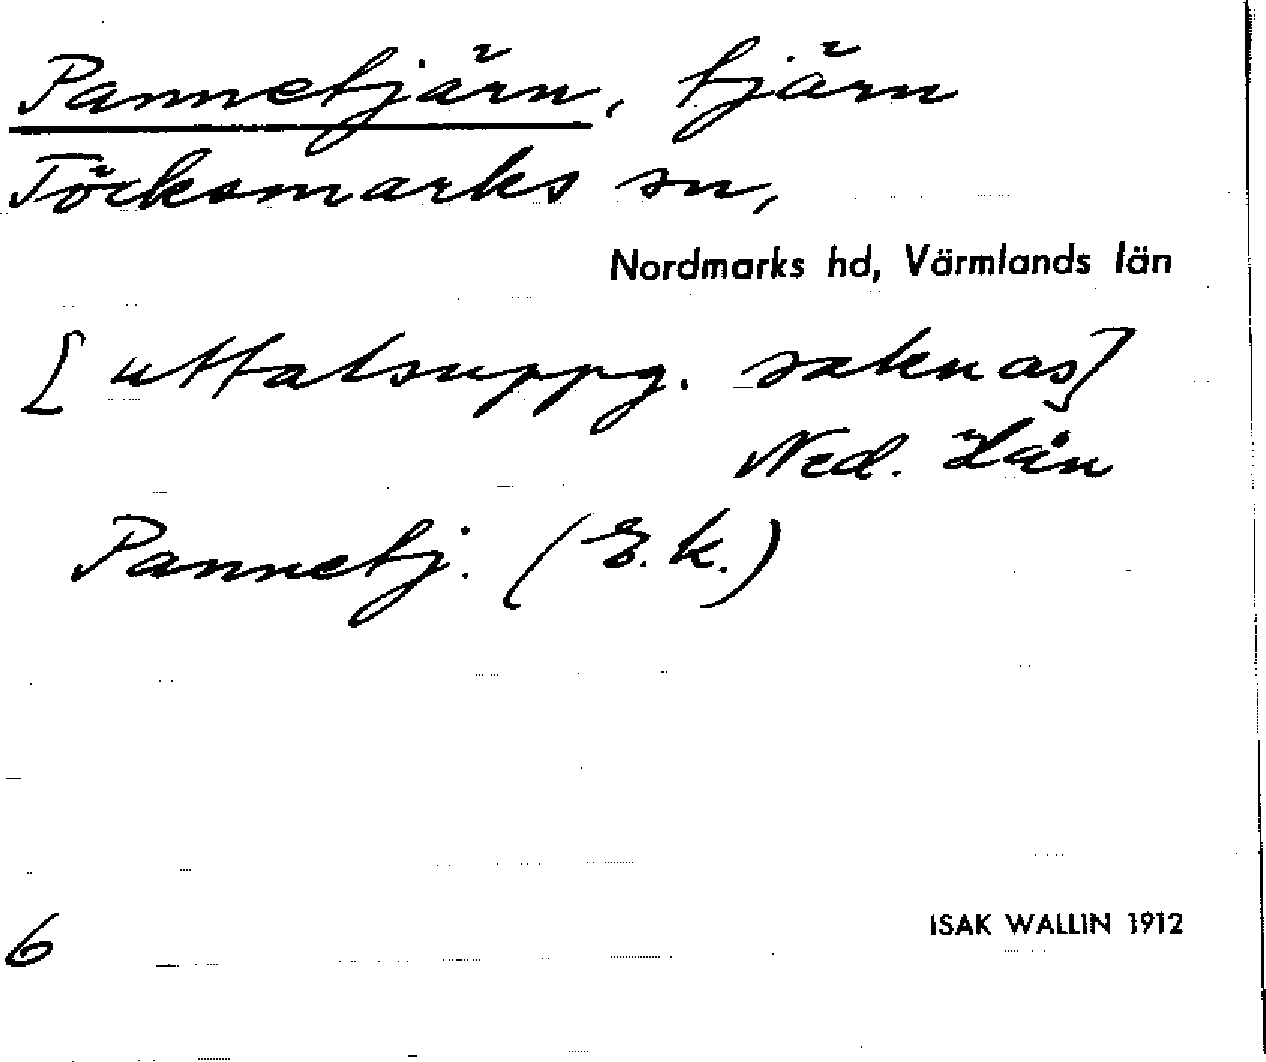 Pannetjärn, tjärn
Töcksmarks sn,
Nordmarks hd, Värmlands län
[uttalsuppg. saknas]
Ned. Hån
Pannetj. (E.k.)
6
ISAK WALLIN 1912